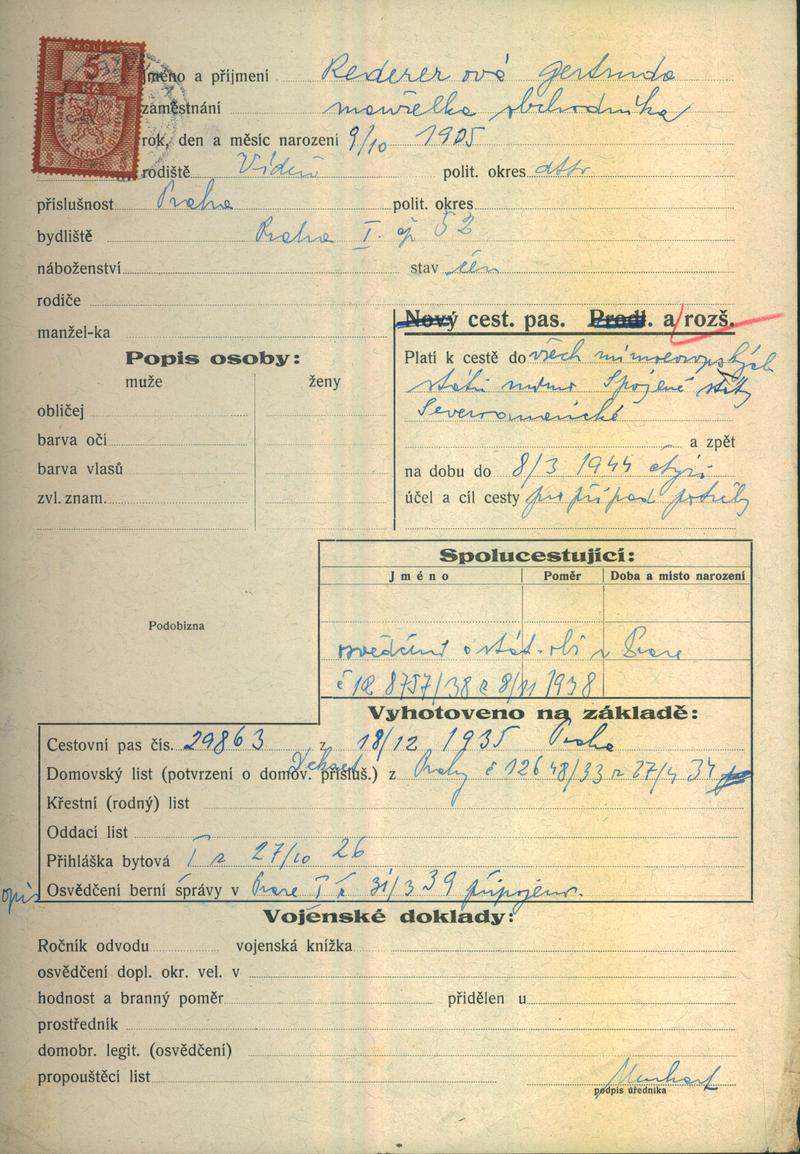 KOLEK
5
Kč
jméno a příjmení Rederer ová Gertruda
zaměstnání manželka obchodníka
rok, den a měsíc narození 9/10 1905
rodiště Vídeň polit. okres dtto
příslušnost Praha polit. okres
bydliště Praha I. čp 52
náboženství stav
rodiče
manžel-ka
Nový cest. pas. Prodl. a rozš.
Popis osoby:
muže ženy
obličej
barva očí
barva vlasů
zvl. znam.
Platí k cestě do všech mimoevropských
států mimo Spojené státy
Severoamerické
a zpět
na dobu do 8/3 1944 čtyři
účel a cíl cesty pro případ potřeby
Spolucestující:
Jméno Poměr Doba a místo narození
Podobizna
osvědčení o stát. obč v Praze
č 8757/38 z 8/11 1938
Vyhotoveno na základě:
Cestovní pas čís. 29863 z 18/12 1935 Praha
Domovský list (potvrzení o domov. přísluš.) z Prahy č 12648/33 z 27/4 34
Křestní (rodný) list
Oddací list
Přihláška bytová I z 27/10 26
opis Osvědčení berní správy v Praze I z 31/3 39 připojeno.
Vojenské doklady:
Ročník odvodu vojenská knížka
osvědčení dopl. okr. vel. v
hodnost a branný poměr přidělen u
prostředník
domobr. legit. (osvědčení)
propouštěcí list
podpis úředníka